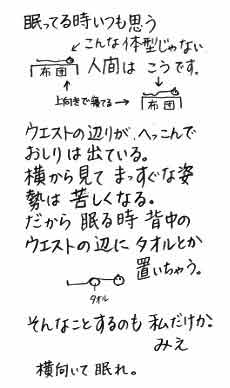 眠ってる時いつも思う
こんな体型じゃない
人間は こうです。
布団
上向きで寝てる→
布団
ウエストの辺りが、へっこんで
おしりは出ている。
横から見て まっすぐな姿
勢は 苦しくなる。
だから 眠る時 背中の
ウエストの辺に タオルとか
置いちゃう。
タオル
そんなことするのも 私だけか。
みえ
横向いて 眠れ。